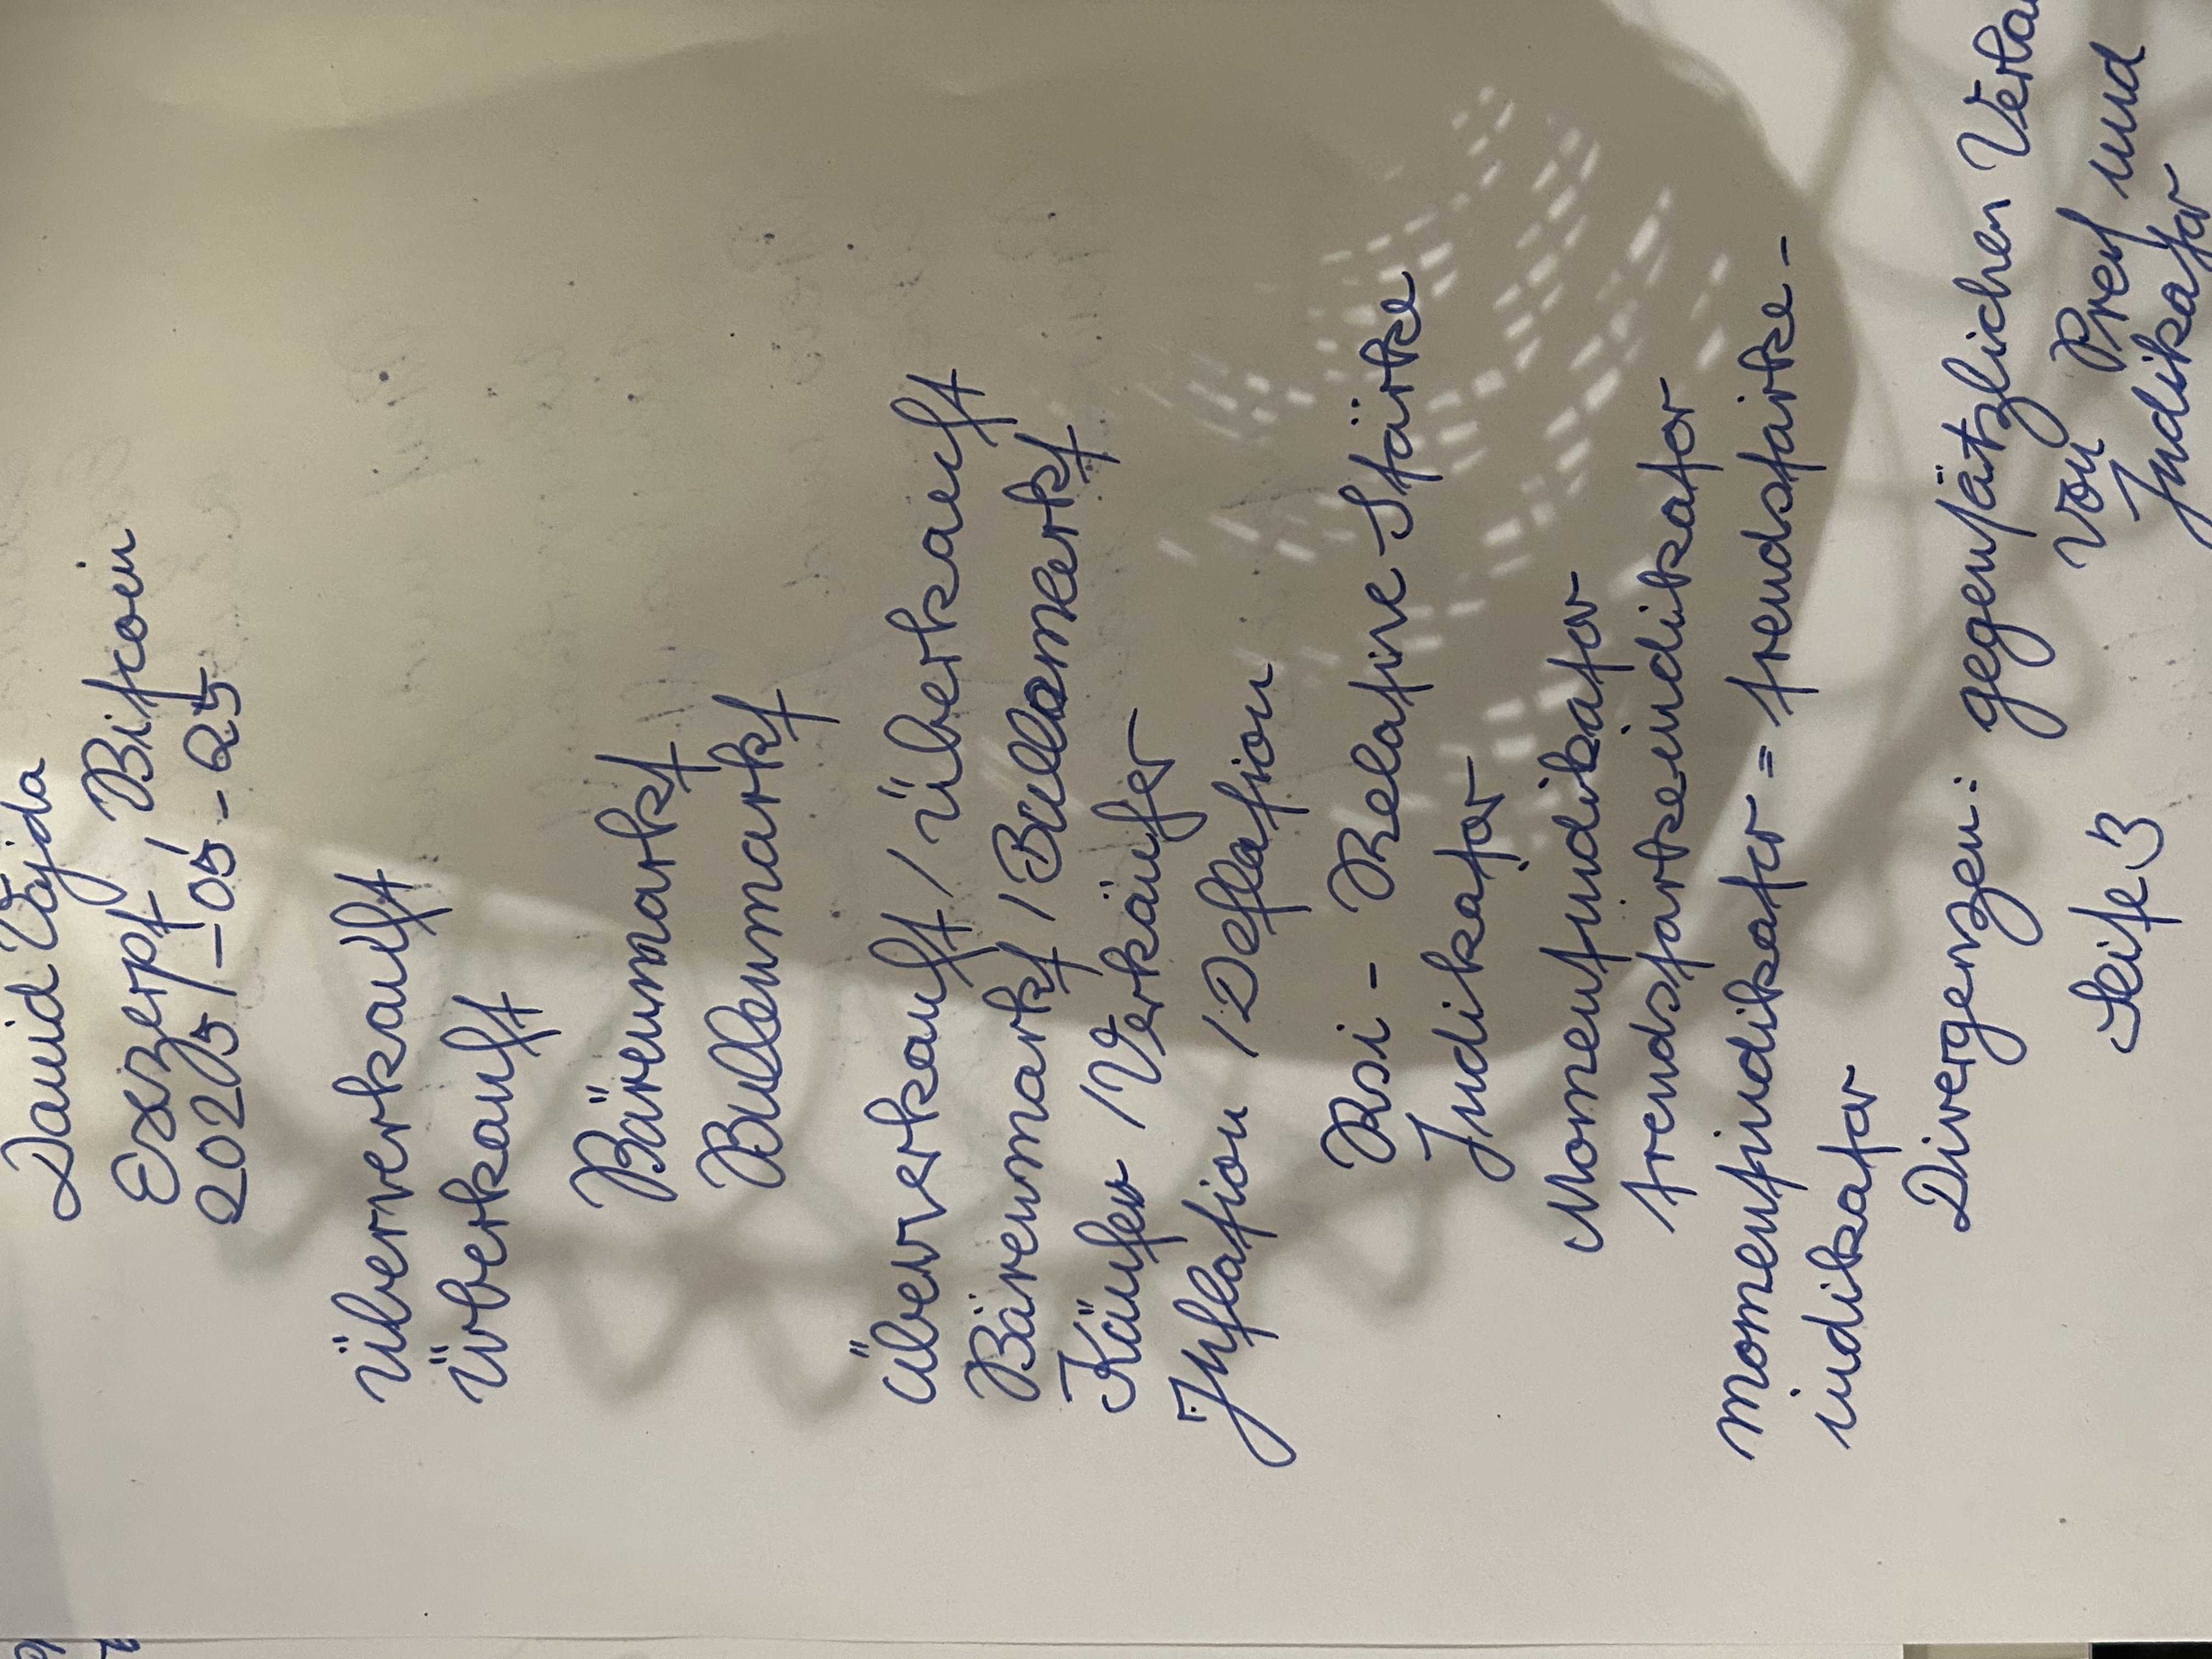 David Vajda
Exzerpt, Bitcoin
2025-05-25
überverkauft
überkauft
Bärenmarkt
Bullenmarkt
überverkauft / überkauft
Bärenmarkt / Bullenmarkt
Käufer / Verkäufer
Inflation / Deflation
Rsi - Relative Stärke
Indikator
Momentindikator
trendstärkeindikator
momentindikator = trendstärke-
indikator
Divergenzen: gegensätzlichen
von Preis und
Indikator
Seite 3